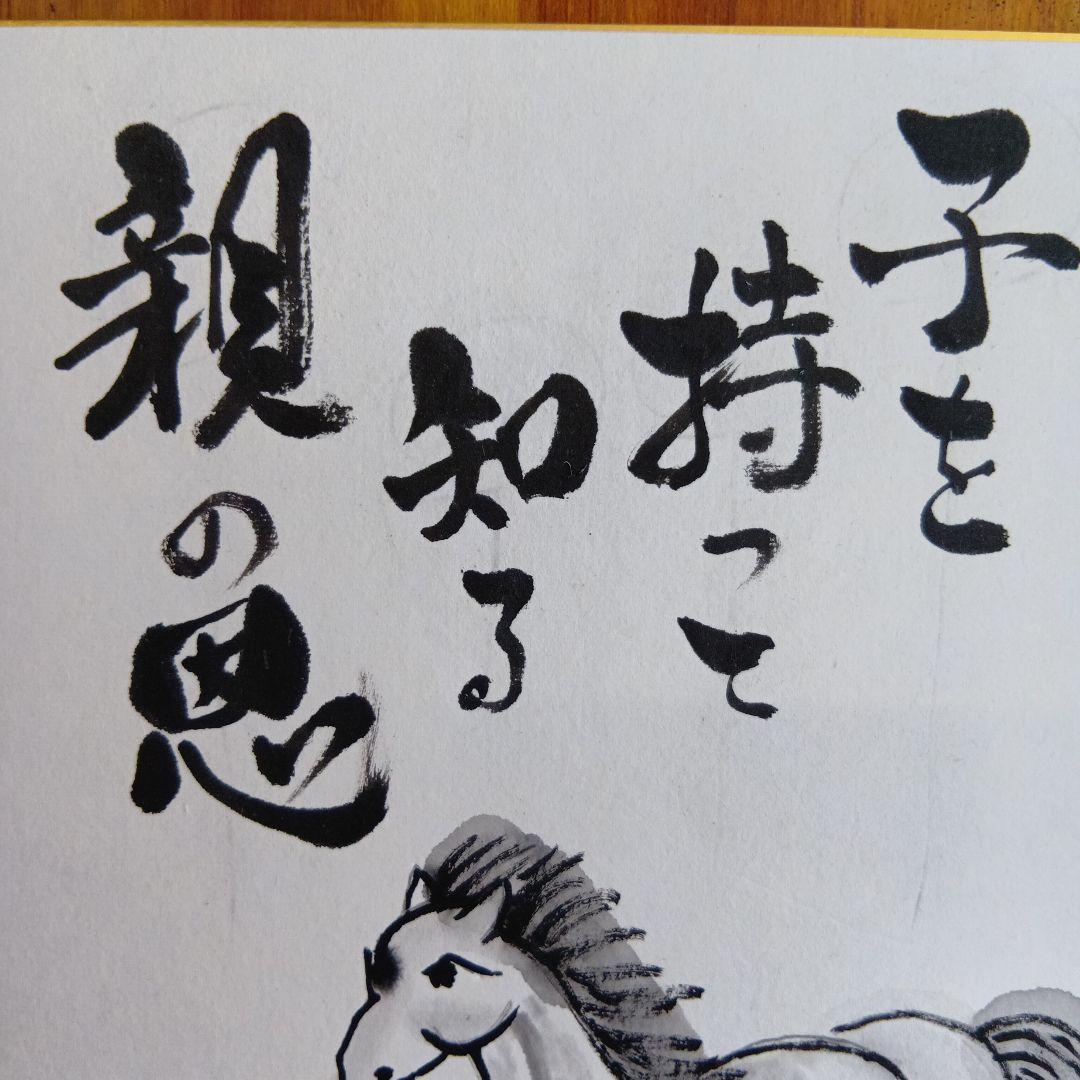 子を
持って
知る
親の恩